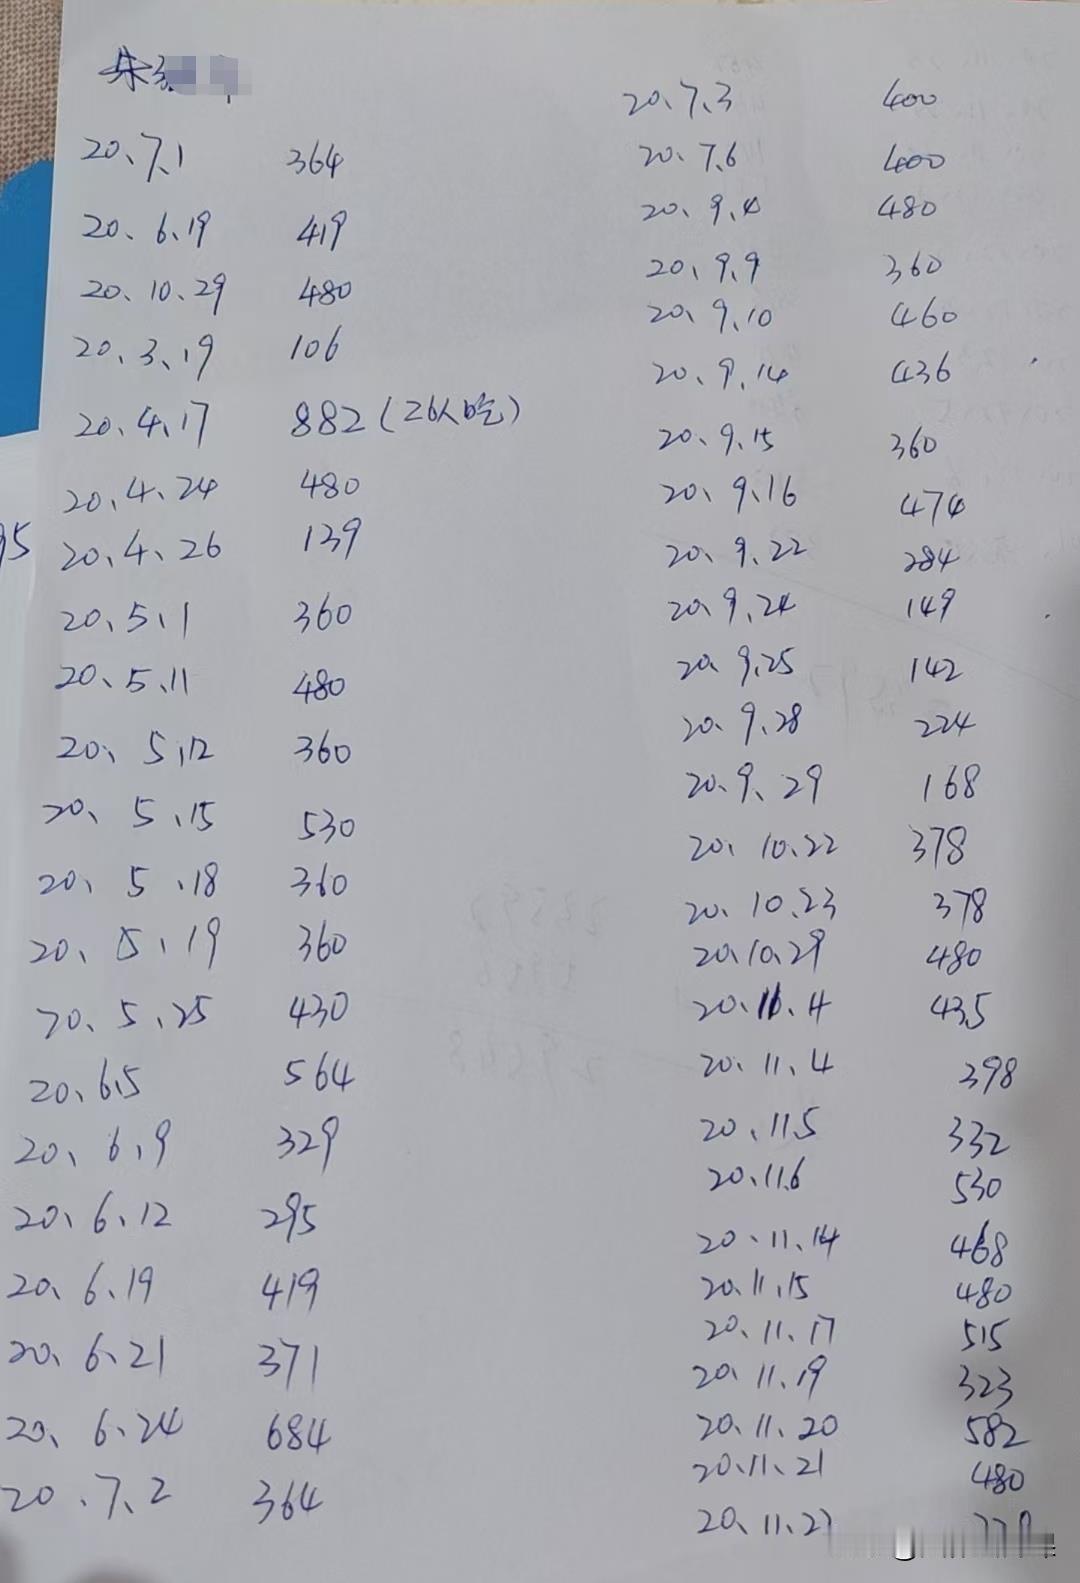 朱
20、7、1 364
20、6、19 419
20、10、29 480
20、3、19 106
20、4、17 882(26人吃)
20、4、24 480
20、4、26 139
20、5、1 360
20、5、11 480
20、5、12 360
20、5、15 530
20、5、18 360
20、5、19 360
20、5、25 430
20、6、5 564
20、6、9 329
20、6、12 295
20、6、19 419
20、6、21 371
20、6、24 684
20、7、2 364
20、7、3 400
20、7、6 400
20、9、4 480
20、9、9 360
20、9、10 460
20、9、14 436
20、9、15 360
20、9、16 474
20、9、22 284
20、9、24 149
20、9、25 142
20、9、28 224
20、9、29 168
20、10、22 378
20、10、23 378
20、10、29 480
20、11、4 435
20、11、4 398
20、11、5 332
20、11、6 530
20、11、14 468
20、11、15 480
20、11、17 515
20、11、19 323
20、11、20 582
20、11、21 480
20、11、